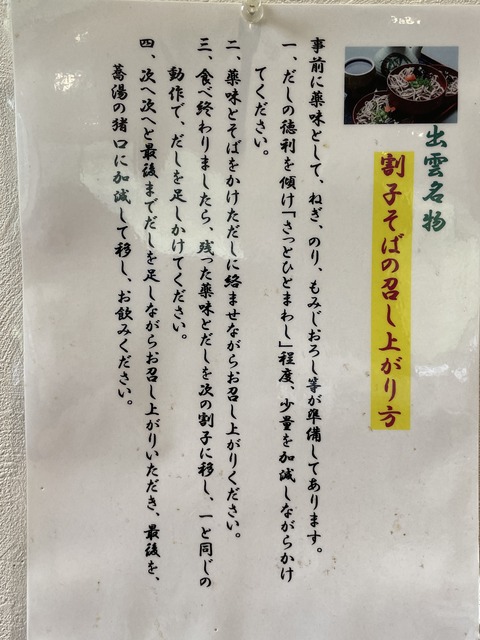 出雲名物
割子そばの召し上がり方
事前に薬味として、ねぎ、のり、もみじおろし等が準備してあります。
一、だしの徳利を傾け「さっとひとまわし」程度、少量を加減しながらかけ
てください。
二、薬味とそばをかけただしに絡ませながらお召し上がりください。
三、食べ終わりましたら、残った薬味とだしを次の割子に移し、一と同じの
動作で、だしを足しかけてください。
四、次へ次へと最後までだしを足しながらお召し上がりいただき、最後を、
蕎湯の猪口に加減して移し、お飲みください。